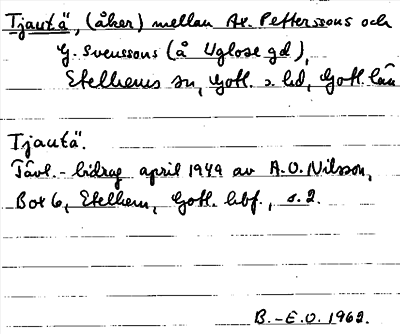 Tjautä, (åker) mellan Ax. Petterssons och
G. Svenssons (å Uglose gd),
Etelhems sn, Gotl. s. hd, Gotl. län
Tjautä.
Tävl.-bidrag april 1949 av A.O. Nilsson,
Box 6, Etelhem, Gotl. hbf., s. 2.
B.-E.O. 1962.